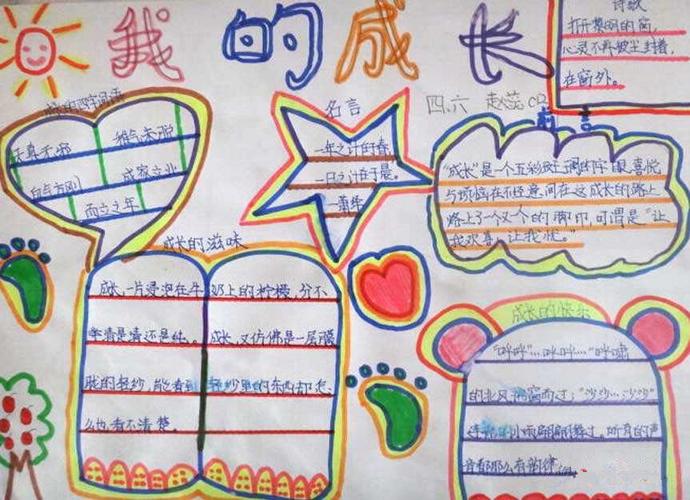 我的成长
诗歌
打开紧闭的窗,
心灵不再被尘封着,
在窗外。
四.六
名言
一年之计在于春
一日之计在于晨。
前言
"成长"是一个五彩斑斓的字眼,喜悦
与烦恼在不经意间在这成长的路上
路上了一个又一个的脚印,可谓是"让
我欢喜,让我忧。"
天真无邪
稚气未脱
血气方刚
成家立业
而立之年
成长的滋味
成长,一片浸泡在牛奶上的柠檬,分不
清是
还是
成长,又仿佛是一层朦
胧的轻纱,能看到轻纱里的东西却怎
么也看不清楚。
成长的快乐
"哗哗"…哗哗…"呼啸
的北风
而过;"沙沙…沙沙"